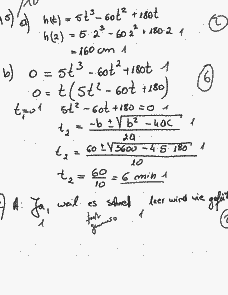 a) h(t) = 5t³ - 60t² + 180t
h(2) = 5·2³ - 60·2² + 180·2 1
= 160 cm 1
b) 0 = 5t³ - 60t² + 180t 1
0 = t(5t² - 60t + 180)
t₁=0 1 5t² - 60t + 180 = 0 1
t₂ = (-b ± √(b² - 4ac)) / 2a 1
t₂ = (60 ± √(3600 - 4·5·180)) / 10 1
t₂ = 60/10 = 6 min 1
A: Ja, weil es leer wird
1 1